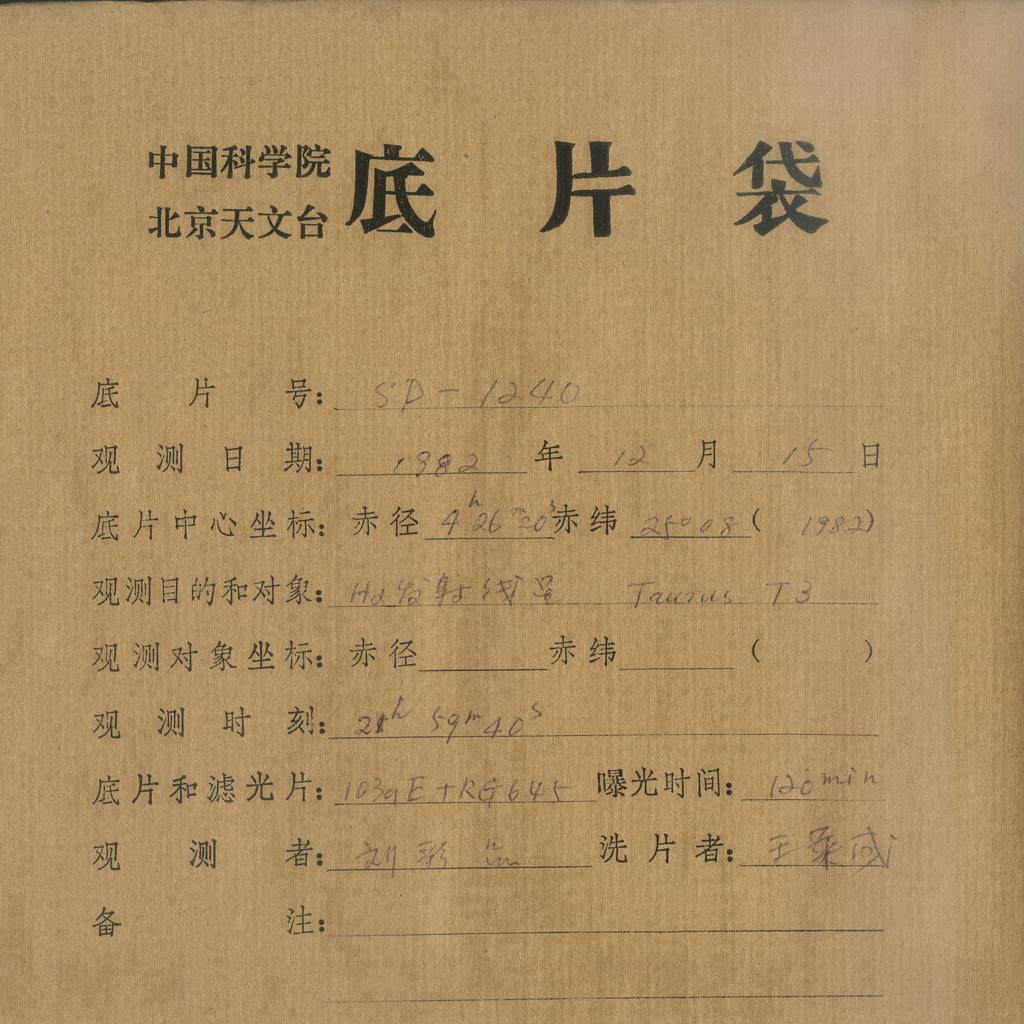 中国科学院
北京天文台
底片袋
底片号： SD-1240
观测日期： 1982 年 12 月 15 日
底片中心坐标： 赤径 4h26m20s 赤纬 25°08 ( 1982)
观测目的和对象： Hα发射线星 Taurus T3
观测对象坐标： 赤径 赤纬 ( )
观测时刻： 21h 59m 40s
底片和滤光片： 103aE+RG645 曝光时间： 120min
观测者： 刘彩 洗片者： 王 成
备注：